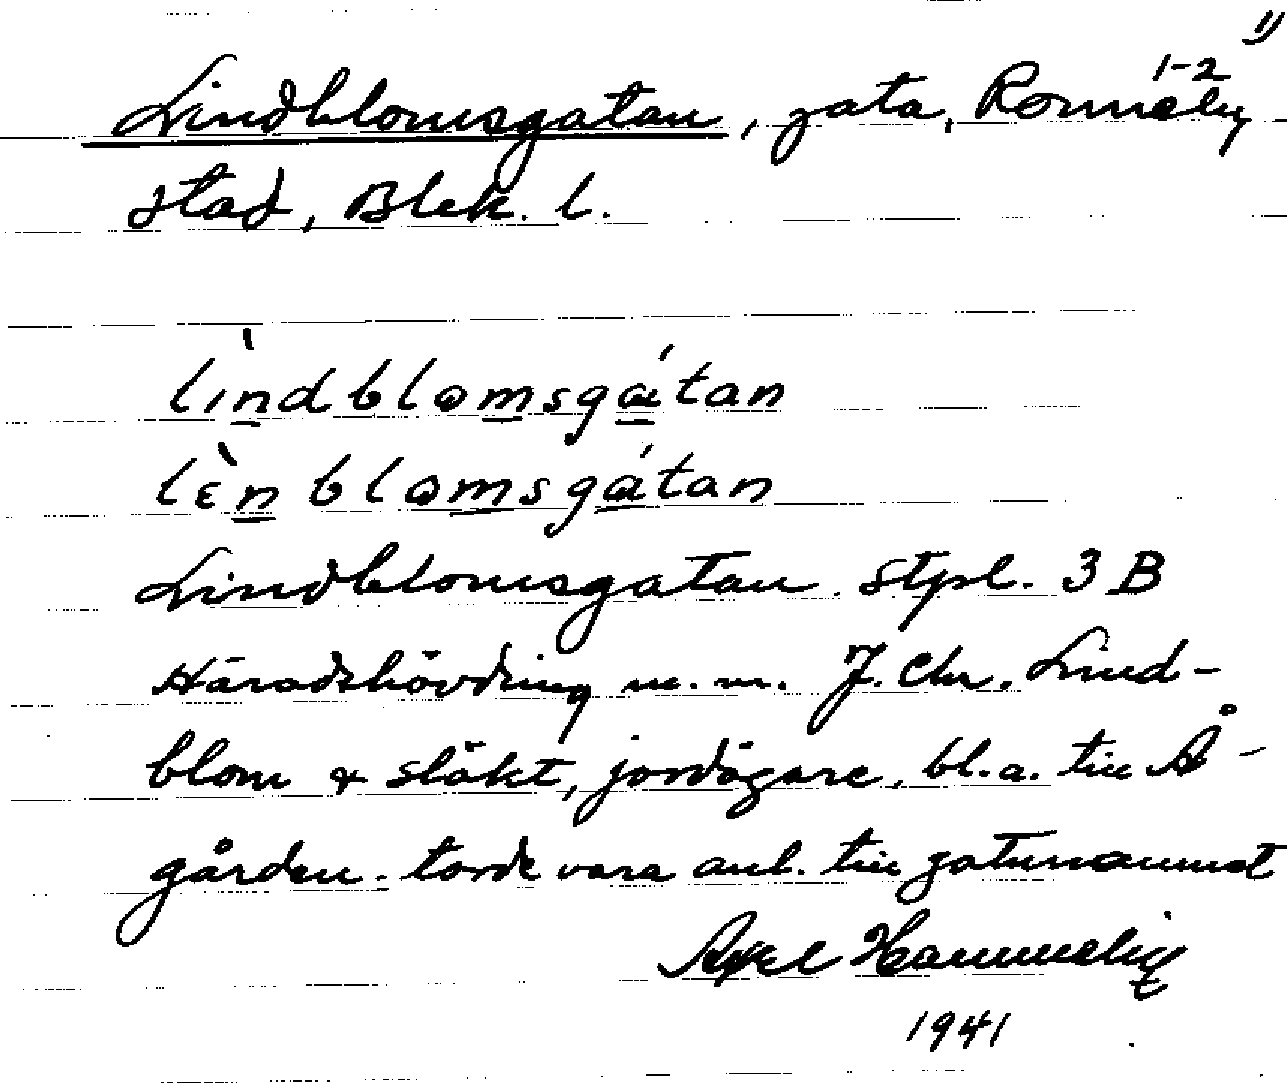 1)
1-2
Lindblomsgatan, gata, Ronneby
stad, Blek. l.
lìndblomsgátan
lɛ̀nblomsgátan
Lindblomsgatan. Stpl. 3 B
Häradshövding m. m. J. Chr. Lind-
blom & släkt, jordägare, bl. a. till Å-
gården. torde vara anl. till gatunamnet
Axel
1941